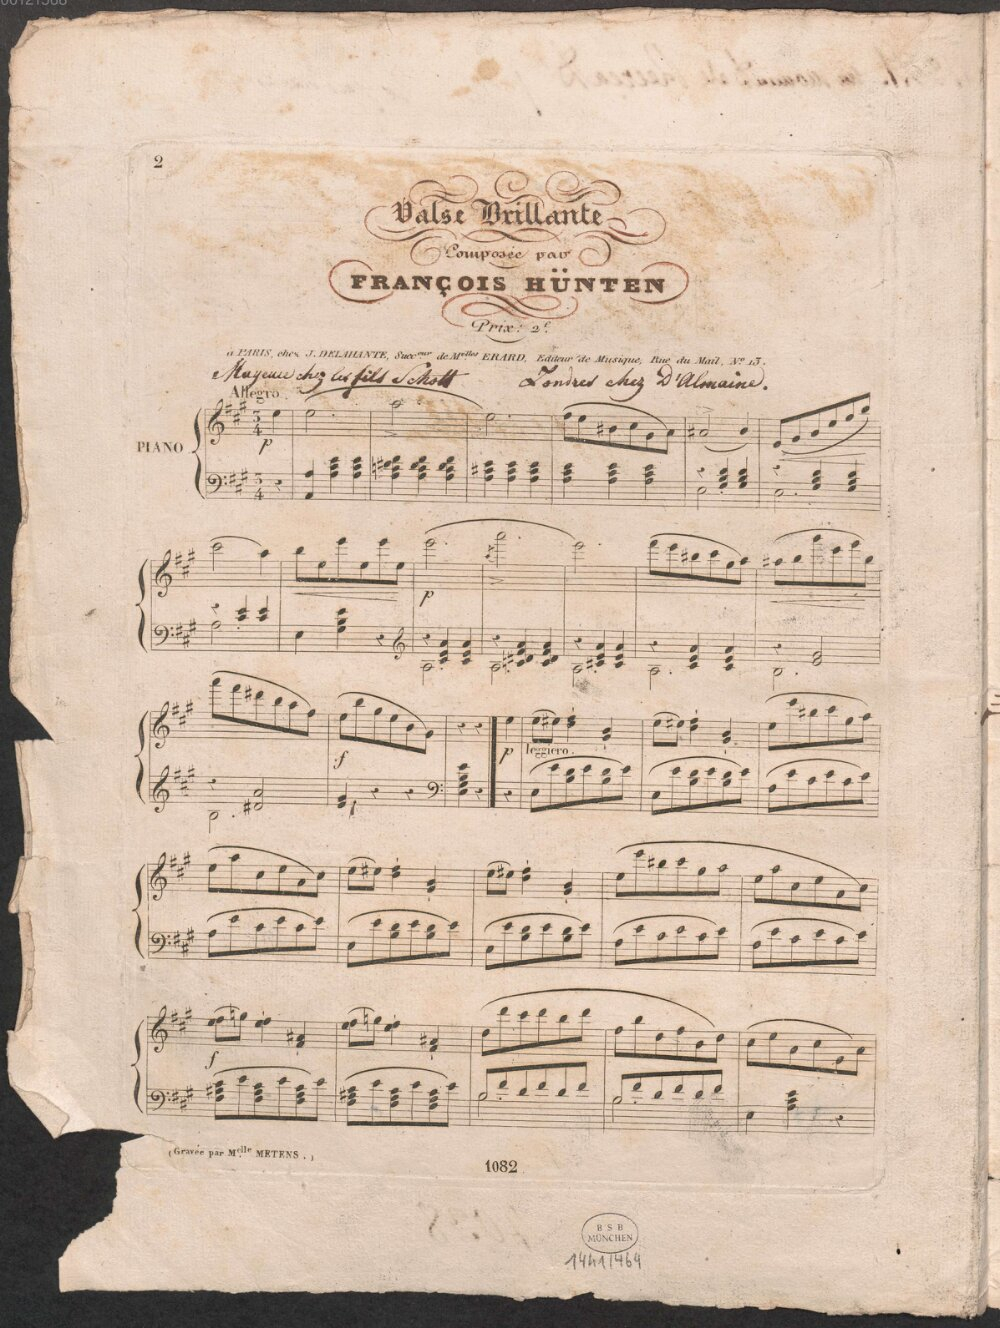 2
Valse Brillante
Composée par
FRANÇOIS HÜNTEN
Prix: 2f.
à PARIS, chez J. DELAHANTE, Succeur de Melles ERARD, Editeur de Musique, Rue du Mail, No. 13.
Mayence chez les fils Schott Londres chez D'Almaine.
Allegro.
PIANO
3/4
p
3/4
p
f
p leggiero.
f
(Gravée par Melle METENS.)
1082.
BSB
MÜNCHEN